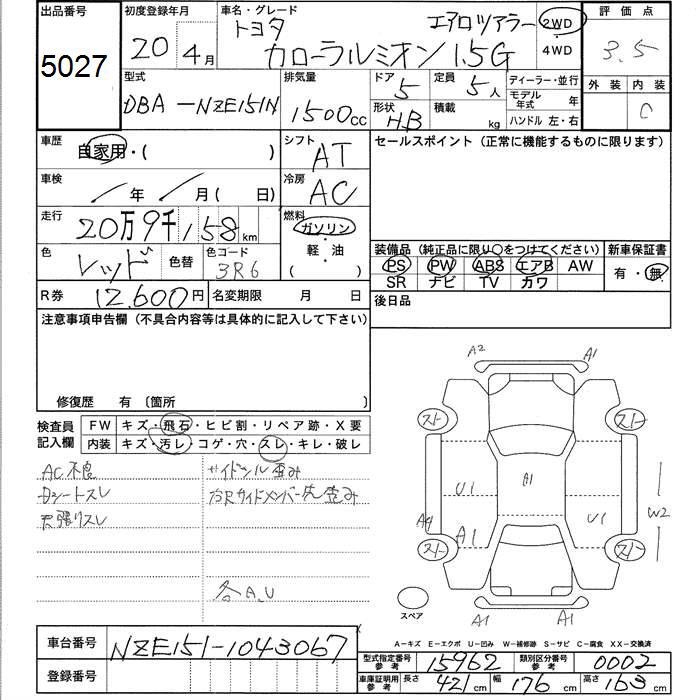 出品番号
5027
初度登録年月
20 4月
車名・グレード
トヨタ
エアロツアラー
カローラルミオン 1.5G
2WD
4WD
評価点
3.5
外装 内装
C
型式
DBA-NZE151N
排気量
1500cc
ドア
5
定員
5人
形状
HB
積載
kg
ディーラー・並行
モデル年式 年
ハンドル 左・右
車歴
自家用・( )
シフト
AT
セールスポイント(正常に機能するものに限ります)
車検
年 月( 日)
冷房
AC
走行
20万9千158km
燃料
ガソリン
軽・油
( )
色
レッド
色替
色コード
3R6
装備品(純正品に限り〇をつけてください)
PS PW ABS エアB AW
SR ナビ TV カワ
新車保証書
有・無
R券
12,600円
名変期限 月 日
後日品
注意事項申告欄(不具合内容等は具体的に記入して下さい)
修復歴 有〔箇所
検査員記入欄
FW キズ・飛石・ヒビ割・リペア跡・X要
内装 キズ・汚レ・コゲ・穴・スレ・キレ・破レ
AC不良
Dシートスレ
天張りスレ
サイドシル歪み
右Rサイドメンバー先歪み
各A.U
A2
A1
スト
スト
A1
U1
A4
A1
U1
W2
スト
スト
スペア
A1
A1
A-キズ E-エクボ U-凹み W-補修跡 S-サビ C-腐食 XX-交換済
車台番号
NZE151-1043067
登録番号
型式指定番号 参考
15962
類別区分番号 参考
0002
車庫証明用 参考
長さ 421cm
幅 176cm
高さ 163cm